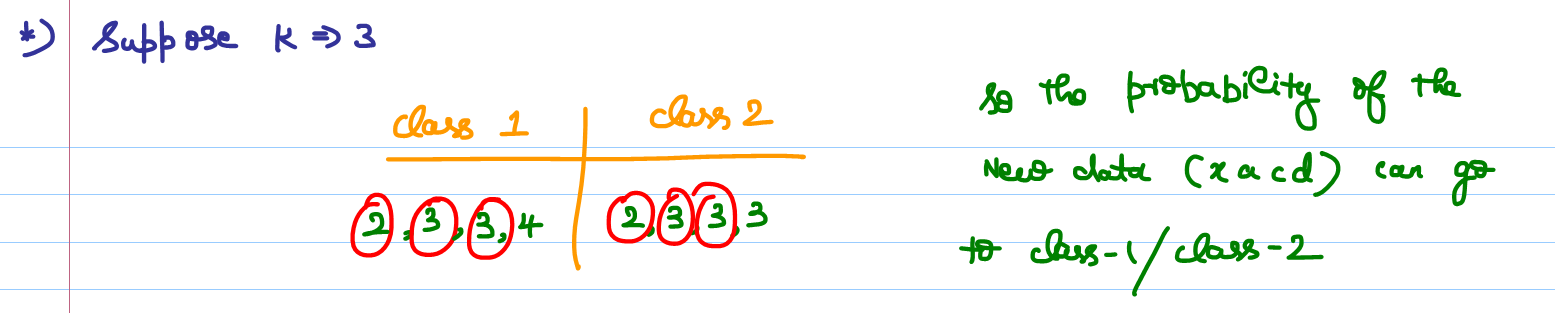 *) Suppose K ⇒ 3
class 1 | class 2
2, 3, 3, 4 | 2, 3, 3, 3
So the probability of the
New data (x a c d) can go
to class-1/class-2